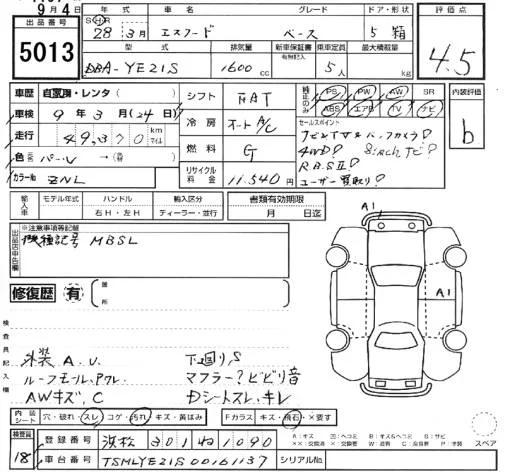 9月4日
出品番号
5013
年式 車名 グレード ドア・形状
SHR 28年3月 エスクード ベース 5 箱
型式 排気量 新車保証書 有無記入 乗車定員 最大積載量
DBA-YE21S 1600cc 5人 kg
評価点
4.5
内装評価
b
車歴 自家用・レンタ( )
車検 9年3月(24日)
走行 49,370 km マイル
色 パール →( )
カラーNo ZNL
シフト FAT
冷房 オートA/C
燃料 G
リサイクル料金 11,540円
純正のみ PS PW AW SR
ABS エアB TV ナビ
セールスポイント
ナビTV&バックカメラ!
4WD! 8inchナビ!
R.B.SⅡ!
ユーザー買取り!
輸入車 モデル年式 ハンドル 輸入区分 書類有効期限
年 右H・左H ディーラー・並行 月 日迄
出品店申告欄
※注意事項等記載
機種記号 MBSL
修復歴 有 箇所
A1
A1
検査員記入欄
外装A.U. 下廻りS
ルーフモール,Pワレ マフラー?ビビリ音
AWキズ,C Dシートスレ,キレ
内装シート 穴・破れ・スレ・コゲ・汚れ・キズ・黄ばみ Fガラス キズ・飛石・×要す
A:キズ U:ヘコミ B:キズ&ヘコミ S:サビ
スペア
検査員 18
登録番号 浜松 301 ね 1090
車台番号 TSMLYE21S00161137 シリアルNo.